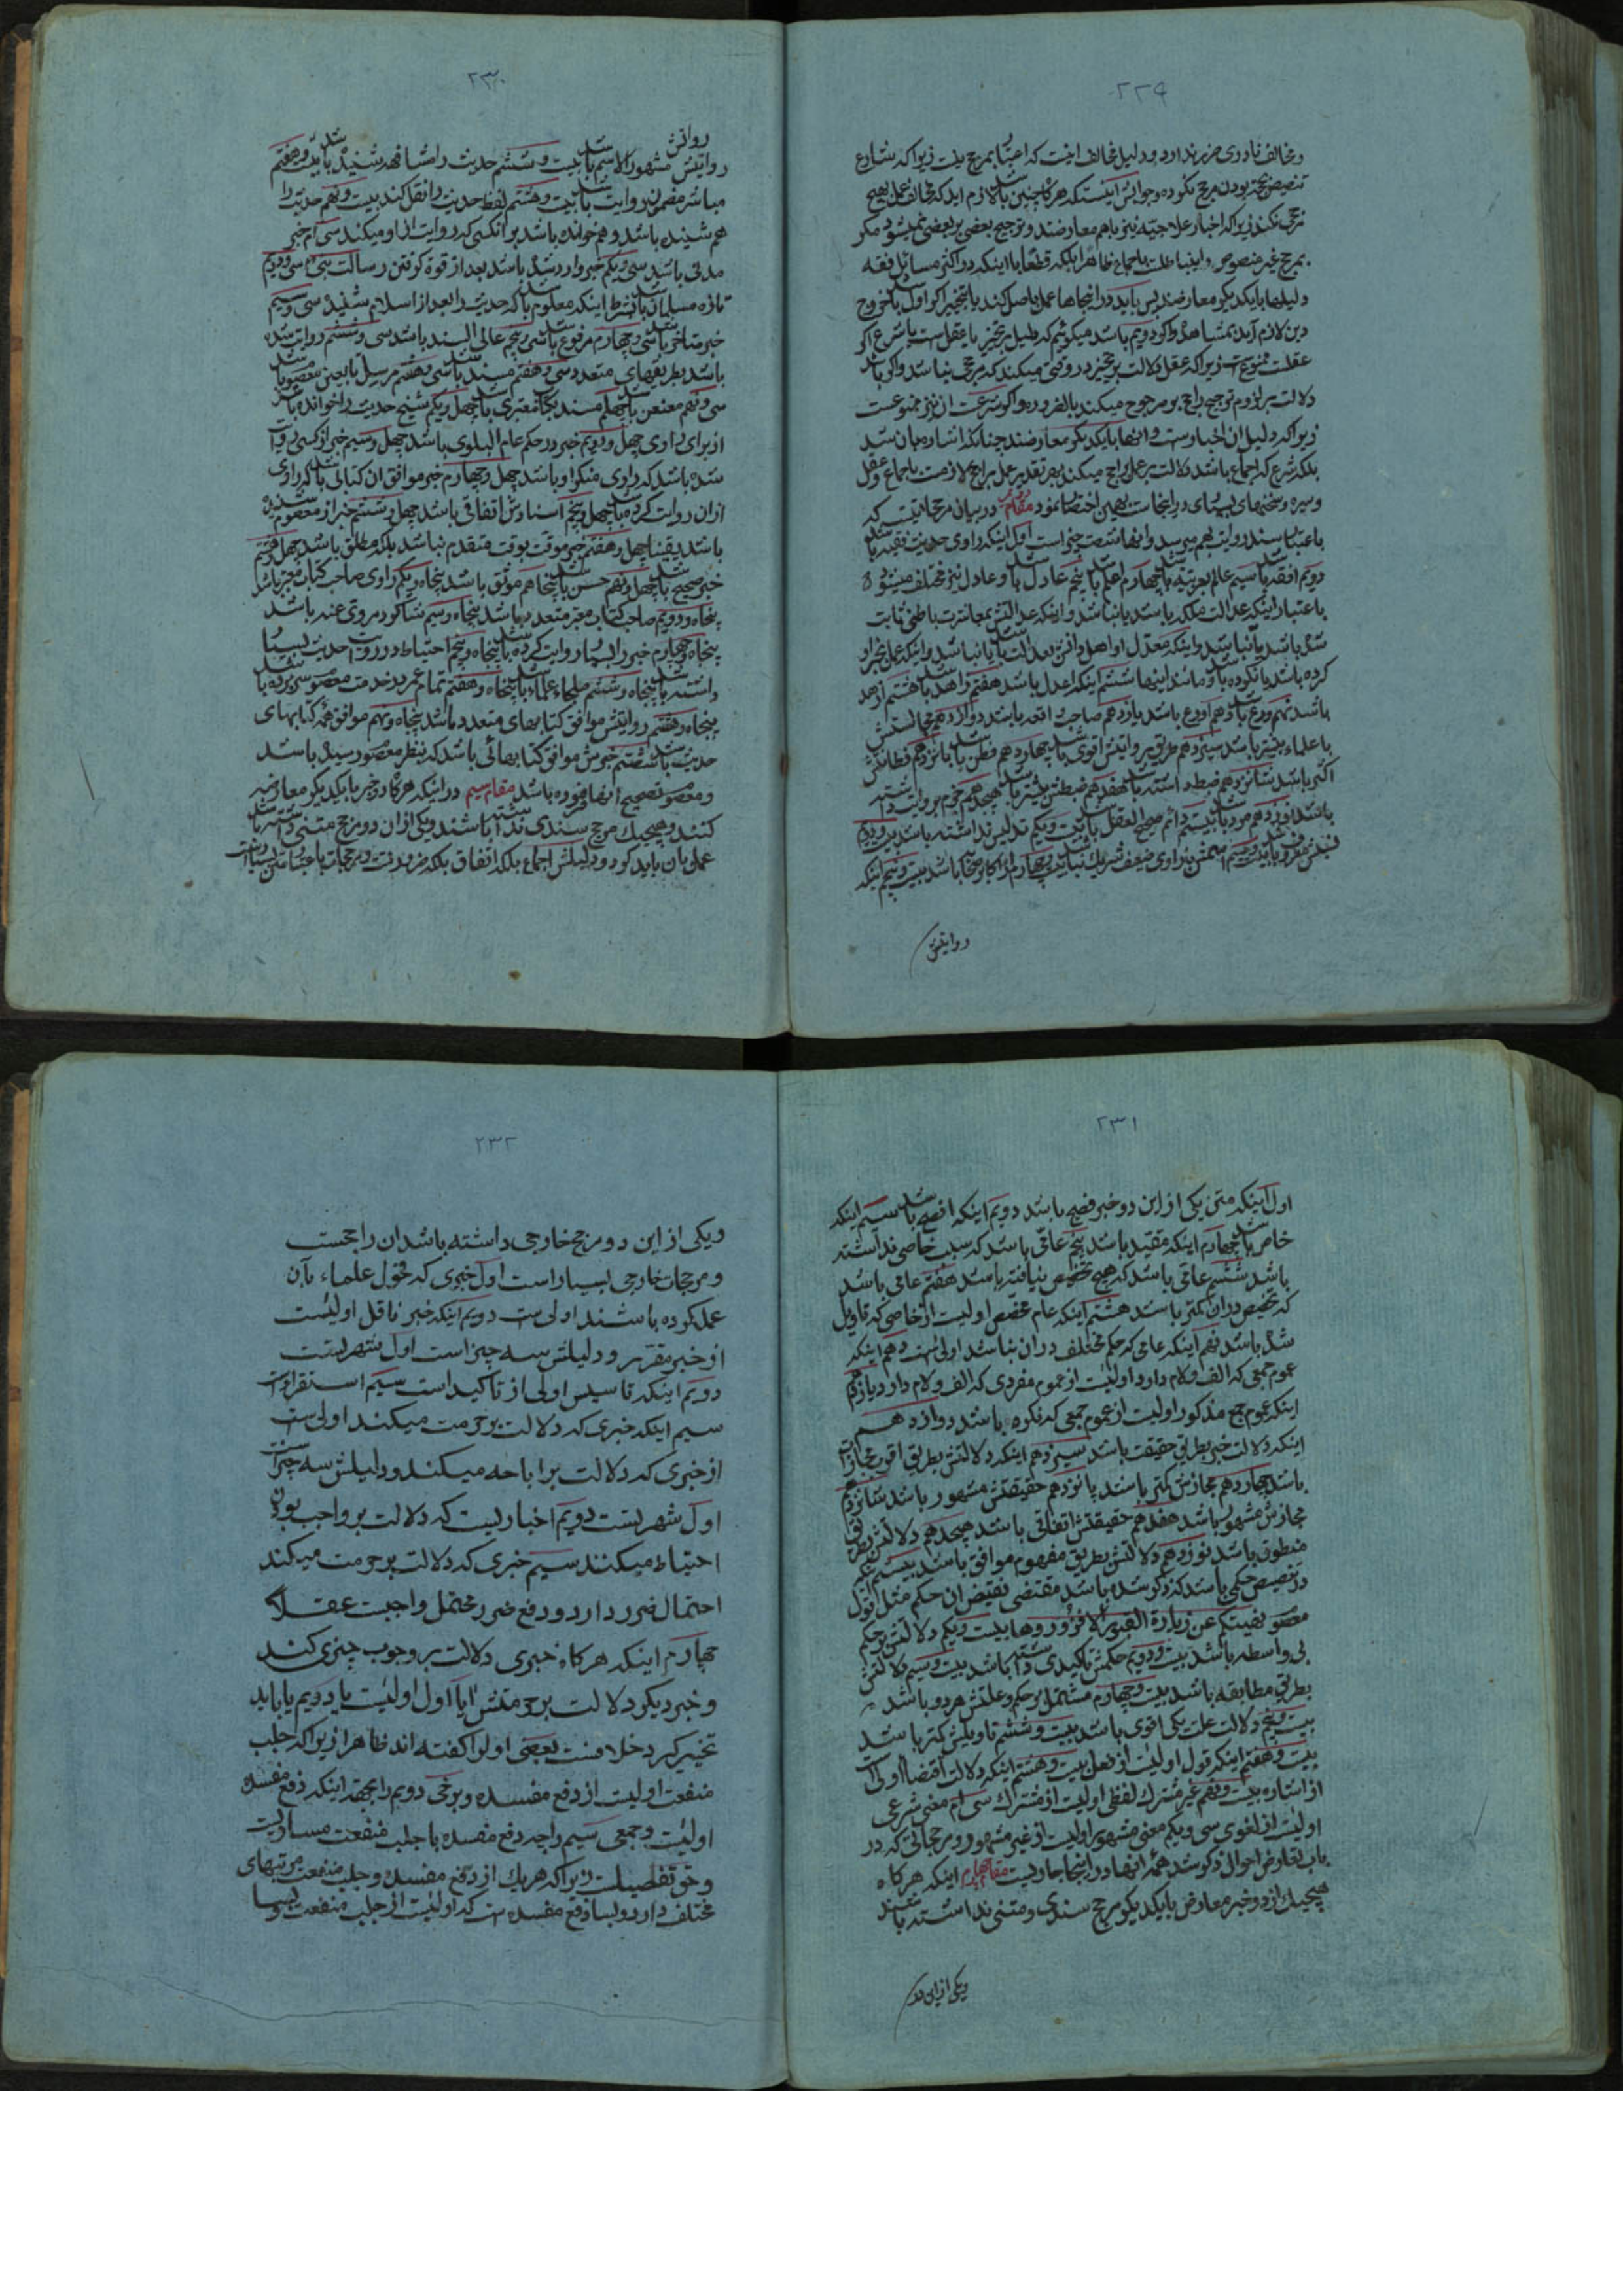 ٢٢٩
و مخالف نادری ضرر ندارد و دلیل مخالف اینست که اعتبار بمرجح نیست زیرا که شارع
ترجیح نکند زیرا که اخبار علاجیه نیز با هم معارضند و ترجیح بعضی بر بعضی نمیشود مگر
بمرجح غیر منصوص و اینها باطلست باجماع ظاهرا بلکه قطعا با اینکه در اکثر مسائل فقه
دلیلها با یکدیگر معارضند پس باید در اینجاها عمل باصل کند یا بتخییر اگر اول باشد خروج
دین لازم آید بمشاهده و اگر دویم باشد میگوئیم که دلیل بر تخییر یا عقل است یا شرع اگر
عقلست ممنوع است زیرا که عقل دلالت بر تخییر در وقتی میکند که مرجحی نباشد و اگر باشد
دلالت بر لزوم ترجیح راجح بر مرجوح میکند بالضروره و اگر شرعست آن نیز ممنوعست
زیرا که دلیل آن اخبارست و آنها با یکدیگر معارضند چنانکه اشاره بان شد
بلکه شرع که اجماع باشد دلالت بر عمل براجح میکند بهر تقدیر عمل براجح لازمست باجماع و عقل
و سیره و سخنهای بسیار در اینجاست بهمین اختصار نمود مقام دویم در بیان مرجحاتیست که
باعتبار سند روایت بهم میرسد و آنها شصت چیز است اول اینکه راوی حدیث فقیه باشد
دویم افقه باشد سیم عالم بعربیة باشد چهارم اعلم باشد پنجم عادل باشد و عادل نیز مختلف میشود
باعتبار اینکه عدالت ملکه باشد یا نباشد و اینکه عدالتش بمعاشرت باطنی ثابت
شده باشد یا نباشد و اینکه معدل او اهل دانش بعدالت باشد یا نباشد و اینکه عمل بخبر او
کرده باشد یا نکرده باشد و مانند اینها ششم اینکه اعدل باشد هفتم زاهد باشد هشتم ازهد
باشد نهم ورع باشد دهم اورع باشد یازدهم صاحب واقعه باشد دوازدهم مجالستش
با علماء بیشتر باشد سیزدهم طریق روایتش اقوی باشد چهاردهم فطن باشد پانزدهم فطانتش
اکثر باشد شانزدهم ضبط داشته باشد هفدهم ضبطش بیشتر باشد هیجدهم جزم بروایت داشته
باشد نوزدهم مرد باشد بیستم دائم صحیح العقل باشد بیست و یکم تدلیس نداشته باشد بیست و دویم
روایتش
٢٣٠
روایتش
روایتش مشهور الاسم باشد بیست و ششم حدیث را مشافهة شنیده باشد بیست و هفتم
مباشر مضمون روایت باشد بیست و هشتم لفظ حدیث را نقل کند بیست و نهم حدیث را
هم شنیده باشد و هم خوانده باشد بر آنکسی که روایت از او میکند سی ام خبر
مدنی باشد سی و یکم خبر وارد شده باشد بعد از قوة گرفتن رسالت نبی سی و دویم
تازه مسلمان باشد بشرط اینکه معلوم باشد که حدیث را بعد از اسلام شنیده سی و سیم
خبر متأخر باشد سی و چهارم مرفوع باشد سی و پنجم عالی السند باشد سی و ششم روایت شده
باشد بطریقهای متعدد سی و هفتم مسند باشد سی و هشتم مرسل تابعین معصوم باشد
سی و نهم معنعن باشد چهلم مسند بکتاب معتبری باشد چهل و یکم شیخ حدیث را خوانده باشد
از برای راوی چهل و دویم خبر در حکم عام البلوی باشد چهل و سیم خبر از کسی روایت
شده باشد که راوی منکر او باشد چهل و چهارم خبر موافق ان کتابی باشد که راوی
ازان روایت کرده باشد چهل و پنجم اسنادش اتفاقی باشد چهل و ششم خبر از معصوم شنیده
باشد یقینا چهل و هفتم خبر موقت بوقت متقدم نباشد بلکه مطلق باشد چهل و هشتم
خبر صحیح باشد چهل و نهم حسن باشد پنجاهم موثق باشد پنجاه و یکم راوی صاحب کتاب معتبر باشد
پنجاه و دویم صاحب کتاب معتبر متعدد باشد پنجاه و سیم شاگرد مروی عنه باشد
پنجاه و چهارم خبر را بسیار روایت کرده باشد پنجاه و پنجم احتیاط در روایت احادیث بسیار
داشته باشد پنجاه و ششم ملجاء علماء باشد پنجاه و هفتم تمام عمر در خدمت معصوم بسر برده باشد
پنجاه و هشتم روایتش موافق کتابهای متعدد باشد پنجاه و نهم موافق همه کتابهای
حدیث باشد شصتم خبرش موافق کتابهائی باشد که بنظر معصوم رسیده باشد
و معصوم تصحیح انها فرموده باشد مقام سیم در اینکه هرگاه دو خبر با یکدیگر معارضه
کنند و هیچیک مرجح سندی نداشته باشند و یکی ازان دو مرجح متنی داشته باشد
عمل بان باید کرد و دلیلش اجماع بلکه اتفاق بلکه ضرورتست و مرجحات باعتبار متن بسیار است
٢٣١
اول اینکه متن یکی از این دو خبر فصیح باشد دویم اینکه افصح باشد سیم اینکه
خاص باشد چهارم اینکه مقید باشد پنجم عامی باشد که سبب خاصی نداشته
باشد ششم عامی باشد که هیچ تخصیص نیافته باشد هفتم عامی باشد
که تخصیص دران کمتر باشد هشتم اینکه عام مخصص اولیست از خاصی که تاویل
شده باشد نهم اینکه عامی که حکم مختلف دران نباشد اولی است دهم اینکه
عموم جمعی که الف و لام دارد اولیست از عموم مفردی که الف و لام دارد یازدهم
اینکه عموم جمع مذکور اولیست از عموم جمعی که نکره باشد دوازدهم
اینکه دلالت خبر بطریق حقیقت باشد سیزدهم اینکه دلالتش بطریق اقرب مجازات
باشد چهاردهم مجازش کمتر باشد پانزدهم حقیقتش مشهور باشد شانزدهم
مجازش مشهور باشد هفدهم حقیقتش اتفاقی باشد هیجدهم دلالتش بطریق
منطوق باشد نوزدهم دلالتش بطریق مفهوم موافق باشد بیستم اینکه
در تخصیص حکمی باشد که ذکر شده باشد مقتضی نقیض ان حکم مثل قول
معصوم نهیتکم عن زیارة القبور الا فزوروها بیست و یکم دلالتش بر حکم
بی واسطه باشد بیست و دویم حکمش تاکیدی داشته باشد بیست و سیم دلالتش
بطریق مطابقه باشد بیست و چهارم مشتمل بر حکم و علتش هر دو باشد
بیست و پنجم دلالت علت یکی اقوی باشد بیست و ششم تاویلش کمتر باشد
بیست و هفتم اینکه قول اولیست از فعل بیست و هشتم اینکه دلالت اقتضا اولی است
از اشاره بیست و نهم غیر مشترک لفظی اولیست از مشترک سی ام معنی شرعی
اولیست از لغوی سی و یکم معنی مشهور اولیست از غیر مشهور و مرجحاتی که در
باب تعارض احوال ذکر شد همه انها در اینجا جاریست مقام چهارم اینکه هرگاه
هیچیک از دو خبر معارض با یکدیگر مرجح سندی و متنی نداشته باشند
و یکی از این دو
٢٣٢
و یکی از این دو مرجح خارجی داشته باشد ان راجحست
و مرجحات خارجی بسیار است اول خبری که فحول علماء بآن
عمل کرده باشند اولی ست دویم اینکه خبر ناقل اولیست
از خبر مقرر و دلیلش سه چیز است اول شهرتست
دویم اینکه تاسیس اولی از تاکید است سیم استقراء است
سیم اینکه خبری که دلالت بر حرمت میکند اولی ست
از خبری که دلالت بر اباحه میکند و دلیلش سه چیز است
اول شهرتست دویم اخباریست که دلالت بر واجب بودن
احتیاط میکنند سیم خبری که دلالت بر حرمت میکند
احتمال ضرر دارد و دفع ضرر محتمل واجبست عقلا
چهارم اینکه هرگاه خبری دلالت بر وجوب چیزی کند
و خبر دیگر دلالت بر حرمتش ایا اول اولیست یا دویم یا باید
تخییر کرد خلافست بعضی اولرا گفته اند ظاهرا زیرا که جلب
منفعت اولیست از دفع مفسده و برخی دویم را بجهة اینکه دفع مفسده
اولیست و جمعی سیم را چه دفع مفسده با جلب منفعت مساویست
و حق تفصیلست زیرا که هر یک از دفع مفسده و جلب منفعت مرتبهای
مختلف دارد و بسا دفع مفسده ست که اولیست از جلب منفعت و بسا